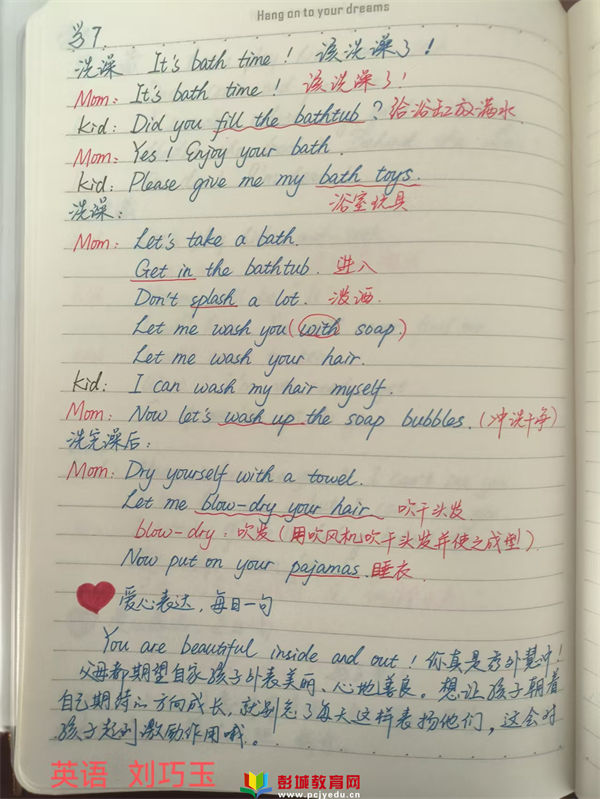 Hang on to your dreams
学7.
洗澡 It's bath time! 该洗澡了!
Mom: It's bath time! 该洗澡了!
kid: Did you fill the bathtub? 给浴缸放满水
Mom: Yes! Enjoy your bath.
kid: Please give me my bath toys.
浴室玩具
洗澡:
Mom: Let's take a bath.
Get in the bathtub. 进入
Don't splash a lot. 泼洒.
Let me wash you (with soap.)
Let me wash your hair.
kid: I can wash my hair myself.
Mom: Now let's wash up the soap bubbles. (冲洗干净)
洗完澡后:
Mom: Dry yourself with a towel.
Let me blow-dry your hair 吹干头发.
blow-dry: 吹发(用吹风机吹干头发并使之成型).
Now put on your pajamas. 睡衣.
爱心表达,每日一句
You are beautiful inside and out! 你真是秀外慧冲!
父母都期望自家孩子外表美丽、心地善良。想让孩子朝着
自己期待的方向成长,就别忘了每天这样表扬他们,这会对
孩子起到激励作用哦。
英语 刘巧玉
彭城教育网
www.pcjyedu.cn